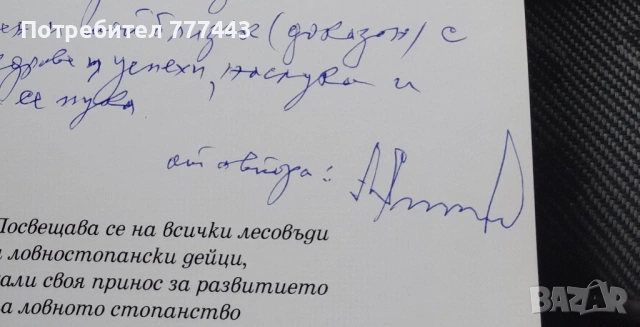 Потребител 777443
(доказан) с
здраве и успехи, наслука и
от автора:
Посвещава се на всички лесовъди
и ловностопански дейци,
дали своя принос за развитието
на ловното стопанство
BAZAR